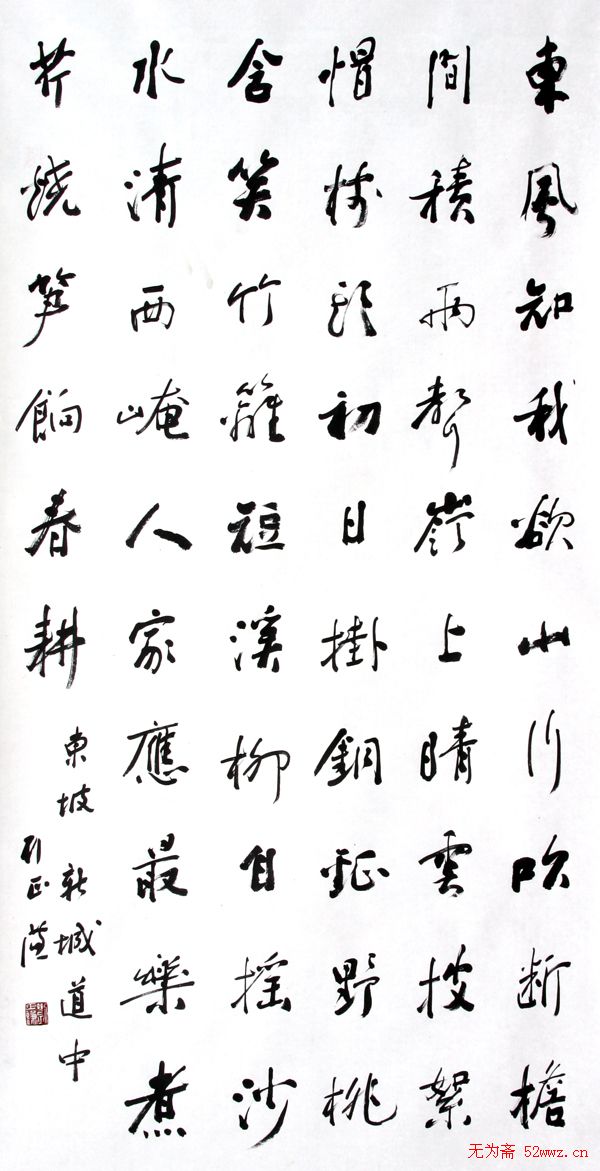 東風知我欲山行吹斷檐
間積雨聲嶺上晴雲披絮
帽樹頭初日掛銅鉦野桃
含笑竹籬短溪柳自搖沙
水清西崦人家應最樂煮
芹燒笋餉春耕
東坡新城道中
无为斋 52wwz.cn